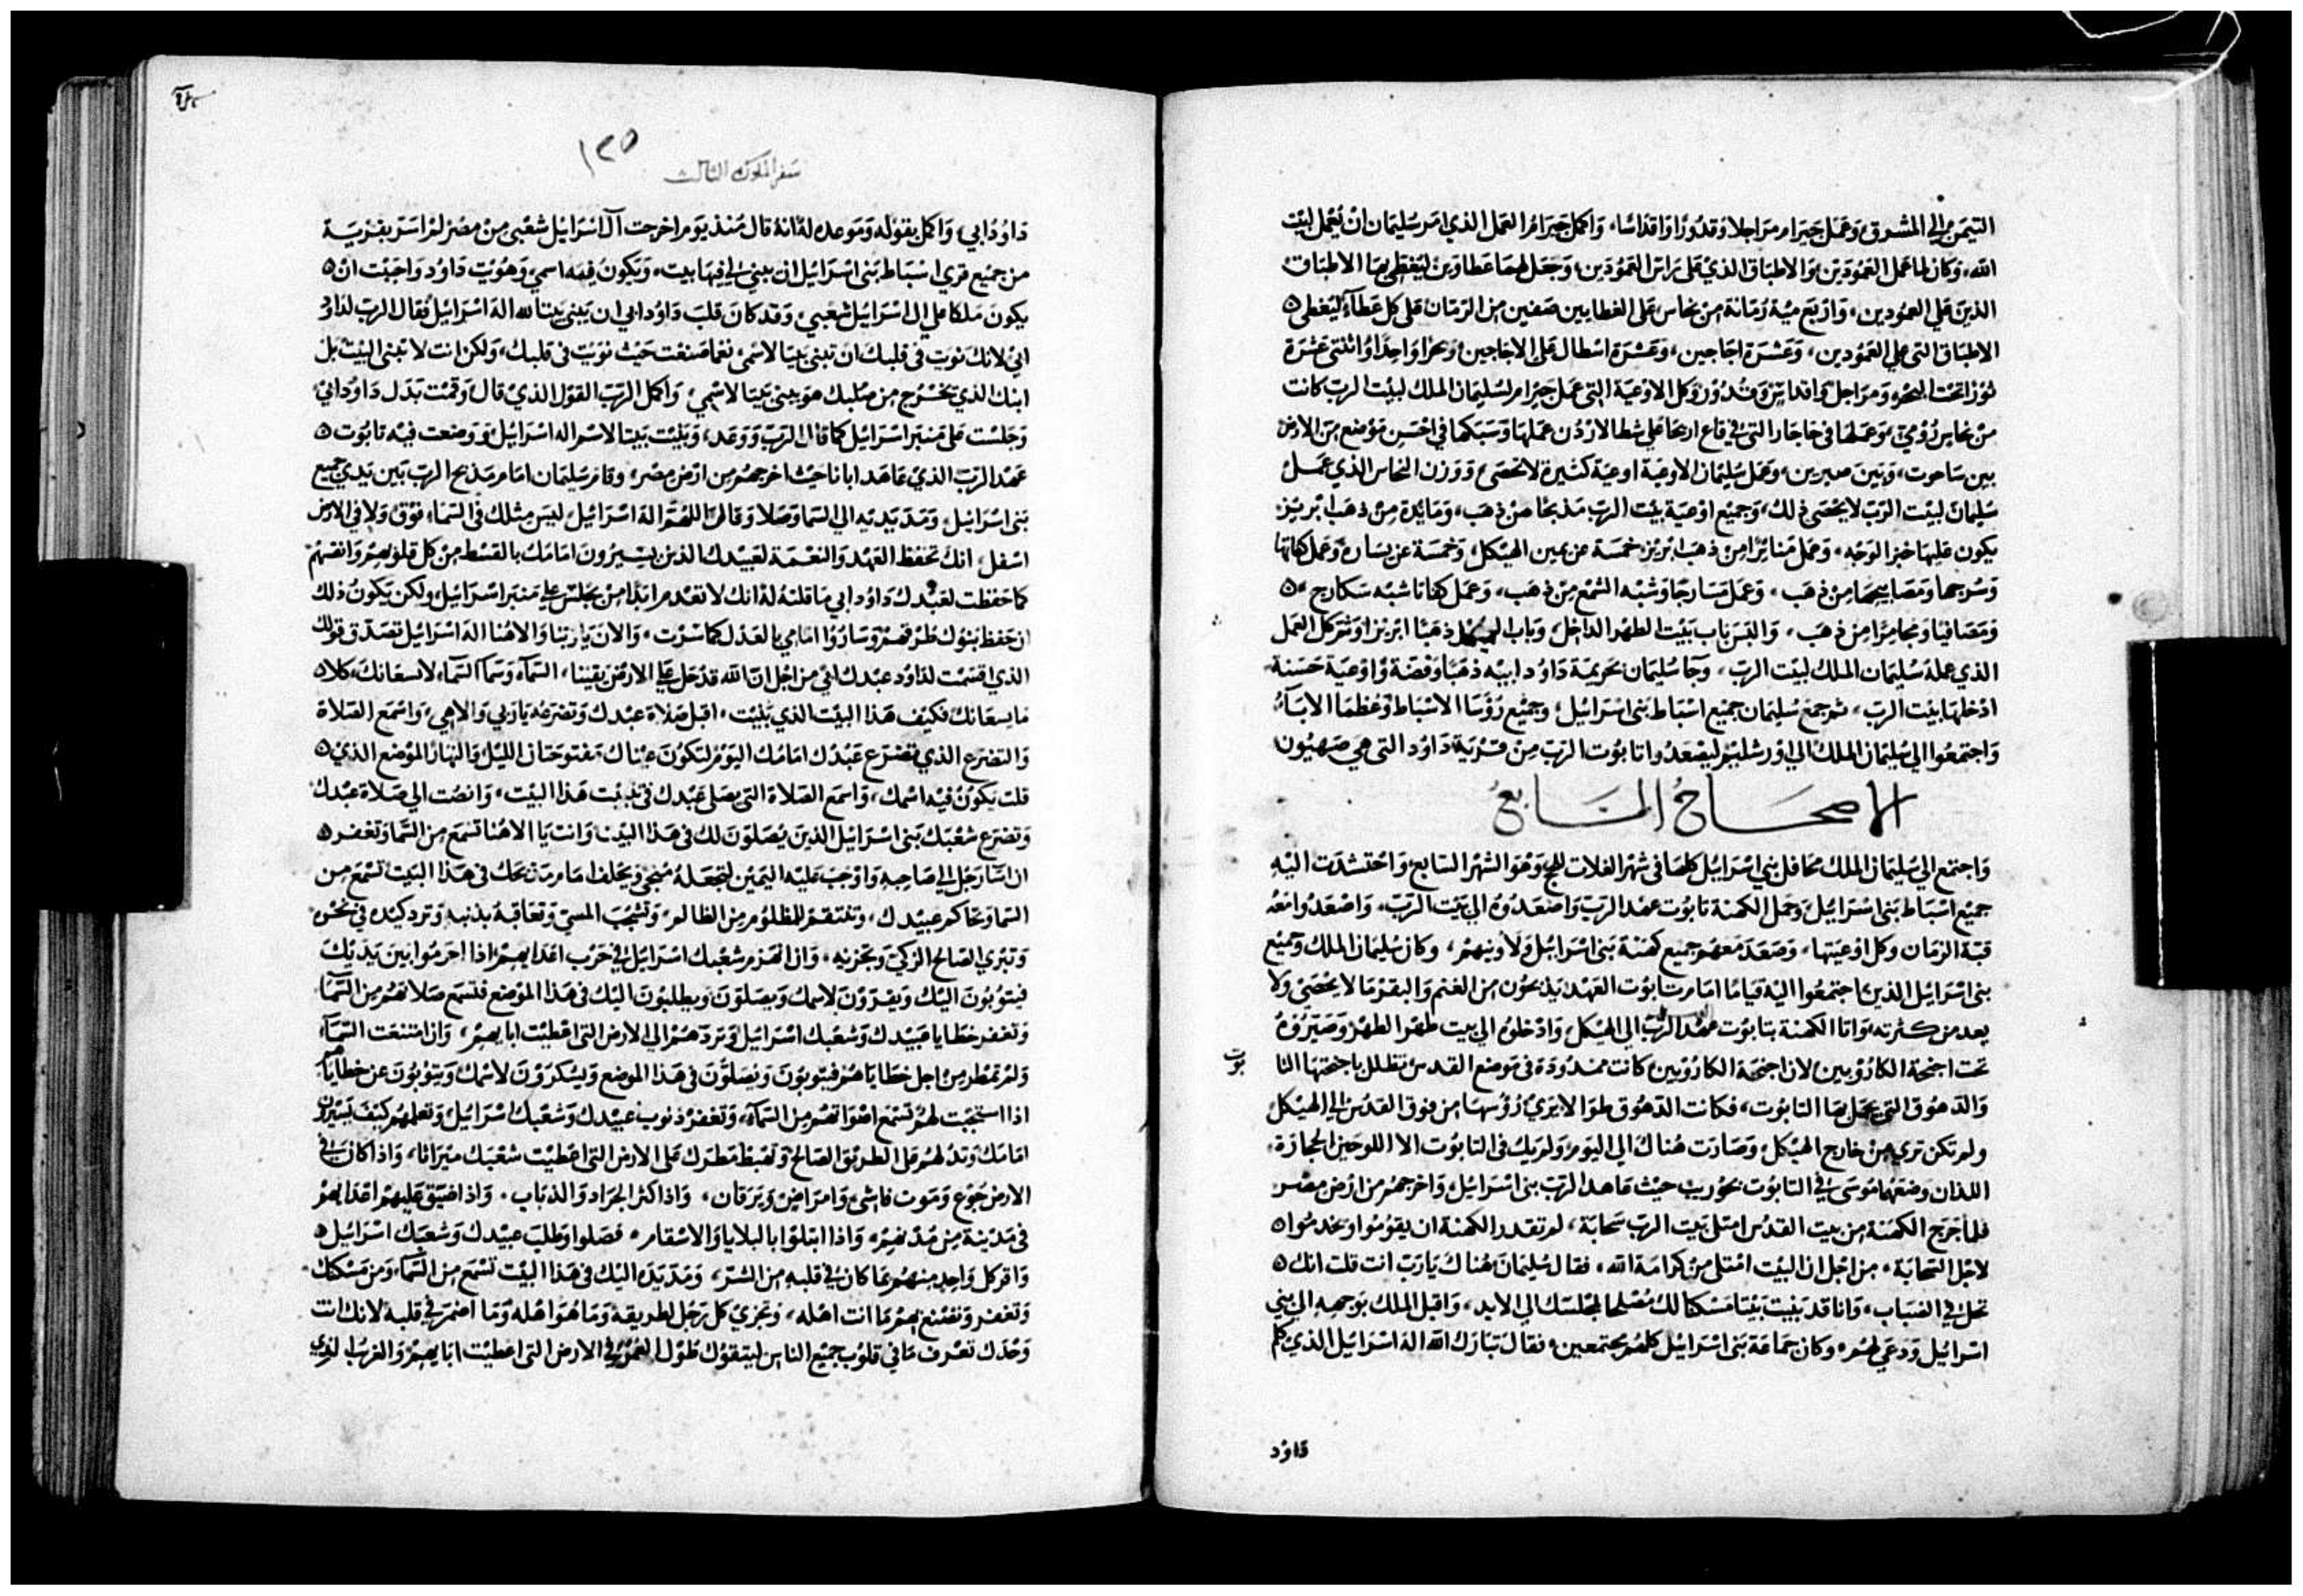 التيمن الي المشرق وعمل جيرام مراجلا وقدورا واقداسا، واكمل جيرام العمل الذي امر سليمان ان يعمل لبيت
الله، وكان لما عمل العمودين والاطباق الذي على راس العمودين، وجعل لهما غطاوين ليغطي بها الاطباق
الذين علي العمودين، واربع مية رمانة من نحاس على الغطايين صفين من الرمان على كل غطاء ليغطي
الاطباق التي على العمودين، وعشرة اجاجين، وعشرة اسطال على الاجاجين وبحرا واحدا واثنتي عشرة
ثورا تحت البحر، ومراجل واقداس وقدور وكل الاوعية التي عمل جيرام لسليمان الملك لبيت الرب كانت
من نحاس رومي عملها في قاع اريحا على شط الاردن عملها وسبكها في احسن موضع من الارض
بين ساحوت، وبين صبرين، وعمل سليمان الاوعية اوعية كثيرة لا تحصى ووزن النحاس الذي عمل
سليمان لبيت الرب لا يحصى ذلك، وجميع اوعية بيت الرب مذبحا من ذهب، ومايدة من ذهب ابريز
يكون عليها خبز الوجه، وعمل منائرا من ذهب ابريز خمسة عن يمين الهيكل، وخمسة عن يساره وعمل
وسرجها ومصابيحها من ذهب، وعمل مسارجا وشبه الشمع من ذهب، وعمل شبه سكارج
ومصافيا ومجامرا من ذهب، باب بيت الطهر الداخل وباب الهيكل ذهبا ابريزا وتم كل العمل
الذي عمله سليمان الملك لبيت الرب، وجا سليمان بحريمة داود ابيه ذهبا وفضة واوعية حسنة
ادخلها بيت الرب، ثم جمع سليمان جميع اسباط بني اسرائيل، وجميع رؤسا الاسباط وعظما الابآء
واجتمعوا الي سليمان الملك الي اورشليم ليصعدوا تابوت الرب من قرية داود التي هي صهيون
الاصحاح السابع
واجتمع الي سليمان الملك محافل بني اسرائيل كلها في شهر الغلات للحج وهو الشهر السابع، واحتشدت اليه
جميع اسباط بني اسرائيل، وحمل الكهنة تابوت عهد الرب واصعدوه الي بيت الرب، واصعدوا معه
قبة الزمان وكل اوعيتها، وصعد معهم جميع كهنة بني اسرائيل ولاوينهم، وكان سليمان الملك وجميع
بني اسرائيل الذين اجتمعوا اليه قياما امام تابوت العهد يذبحون من الغنم والبقر ما لا يحصى ولا
يعد من كثرته، واتا الكهنة بتابوت عهد الرب الي الهيكل، وادخلوه الي بيت طهر الطهر وصيروه
تحت اجنحة الكاروبين لان اجنحة الكاروبين كانت ممدودة في موضع القدس تظلل باجنحتها التا
بوت
والدهوق التي يحمل بها التابوت، فكانت الدهوق طوالا يرى رؤسها من فوق القدس الي الهيكل
ولم تكن ترى من خارج الهيكل، وصارت هناك الي اليوم، ولم يك في التابوت الا اللوحين الحجارة،
اللذان وضعهما موسى في التابوت بحوريب حيث عاهد الرب بني اسرائيل، واخرجهم من ارض مصر
فلما خرج الكهنة من بيت القدس امتلى بيت الرب سحابة، لم تقدر الكهنة ان يقوموا ويخدموا
لاجل السحابة، من اجل ان البيت امتلى من كرامة الله، فقال سليمان هناك يا رب انت قلت انك
تحل في الضباب، وانا قد بنيت بيتا مسكنا لك مصلحا لمجلسك الي الابد، واقبل الملك بوجهه الي بني
اسرائيل ودعي لهم، وكان جماعة بني اسرائيل كلهم مجتمعين، فقال تبارك الله اله اسرائيل الذي كلم
داود
١٢٥
سفر الملوك الثالث
داود ابي، واكمل بقوله وموعده له انه قال منذ يوم اخرجت آل اسرائيل شعبي من مصر لم اسر بقرية
من جميع قرى اسباط بني اسرائيل ان يبني لي فيها بيت، ويكون فيه اسمي، وهويت داود واحببت ان
يكون ملكا على آل اسرائيل شعبي، وقد كان قلب داود ابي ان يبني بيتا لله اله اسرائيل فقال الرب لداود
ابي لانك نويت في قلبك ان تبني بيتا لاسمي نعما صنعت حيث نويت في قلبك، ولكن انت لا تبني البيت بل
ابنك الذي يخرج من صلبك هو يبني بيتا لاسمي، واكمل الرب القول الذي قال وقمت بدل داود ابي
وجلست على منبر اسرائيل كما قال الرب ووعد، وبنيت بيتا لاسم اله اسرائيل ووضعت فيه تابوت
عهد الرب الذي عاهد ابانا حيث اخرجهم من ارض مصر، وقام سليمان امام مذبح الرب بين يدي جميع
بني اسرائيل، ومد يديه الي السما وصلا وقال اللهم اله اسرائيل ليس مثلك في السماء فوق ولا في الارض
اسفل انك تحفظ العهد والنعمة لعبيدك الذين يسيرون امامك بالقسط من كل قلوبهم وانفسهم
كما حفظت لعبدك داود ابي ما قلته له انك لا تعدم ابدا من يجلس على منبر اسرائيل، ولكن يكون ذلك
ان حفظ بنوك طرقهم وساروا امامي بالعدل كما سرت، والان يا ربنا والاهنا اله اسرائيل تصدق قولك
الذي اقسمت لداود عبدك ابي من اجل ان الله قد حل على الارض يقينا، السماء وسما السماء لا تسعانك كلا
ما يسعانك فكيف هذا البيت الذي بنيت، اقبل صلاة عبدك وتضرعه يا ربي والاهي، واسمع الصلاة
والتضرع الذي تضرع عبدك امامك اليوم لتكون عيناك مفتوحتان الليل والنهار الموضع الذي
قلت يكون فيه اسمك، واسمع الصلاة التي يصلي عبدك في هذا البيت، وانصت الي صلاة عبدك
وتضرع شعبك بني اسرائيل الذين يصلون لك في هذا البيت وانت يا الاهنا تسمع من السما وتغفر
ان اسا رجل الي صاحبه واوجب عليه اليمين لتجعله ويحلف امام مذبحك في هذا البيت تسمع من
السما وتحاكم عبيدك، وتنتقم للمظلوم من الظالم، المسي وتعاقبه بذنبه وترد كيده في نحره
وتبري الصالح الزكي وتجزيه، وان انهزم شعبك اسرائيل في حرب اعدايهم اذا اجرموا بين يديك
فيتوبون اليك ويقرون لاسمك ويصلون ويطلبون اليك في هذا الموضع فتسمع صلاتهم من السمآ
وتغفر خطايا عبيدك وشعبك اسرائيل وتردهم الي الارض التي اعطيت ابايهم، وان امتنعت السماء
ولم تمطر من اجل خطاياهم فيتوبون ويصلون في هذا الموضع ويشكرون لاسمك ويتوبون عن خطاياهم
اذا استجبت لهم تسمع اصواتهم من السمآء، وتغفر ذنوب عبيدك وشعبك اسرائيل وتعلمهم كيف يسيرون
امامك وتدلهم على الطريق الصالح وتهبط مطرك على الارض التي اعطيت شعبك ميراثا، واذا كان في
الارض جوع وموت فاشي وامراض ويرقان، واذا كثر الجراد والذباب، واذا ضيق عليهم اعدايهم
في مدينة من مدنهم، واذا ابتلوا بالبلايا والاسقام، فصلوا وطلب عبيدك وشعبك اسرائيل
واقر كل واحد منهم بما كان في قلبه من الشر، ومد يده اليك في هذا البيت تسمع من السماء ومن مسكنك
وتغفر وتصنع بهم ما انت اهله، وتجزي كل رجل لطريقه وما هو اهله وما اضمر في قلبه لانك انت
وحدك تعرف ما في قلوب جميع الناس ليتقوك طول العمر في الارض التي اعطيت ابايهم والغريب الذي